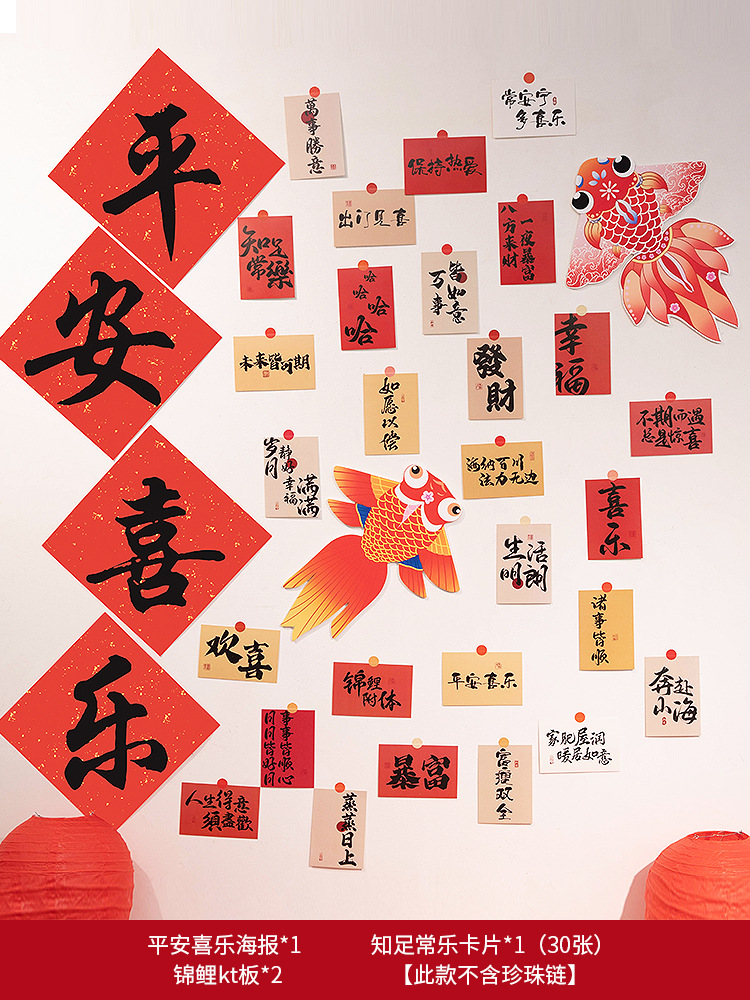 平
安
喜
乐
萬事勝意
常安宁
多喜乐
保持热爱
出门见喜
知足
常樂
八方来财
一夜暴富
哈
哈哈
哈哈
哈
皆如意
万事
發
財
幸
福
未来皆可期
如愿以偿
不期而遇
总是惊喜
岁月
静好
幸福
满满
海纳百川
法力无边
喜
乐
生活
明朗
诸事皆顺
欢喜
锦鲤
附体
平安喜乐
奔赴
小海
事事皆顺心
日日皆好日
暴富
家肥屋润
暖居如意
人生得意
須盡歡
蒸蒸日上
平安喜乐海报*1
知足常乐卡片*1（30张）
锦鲤kt板*2
【此款不含珍珠链】